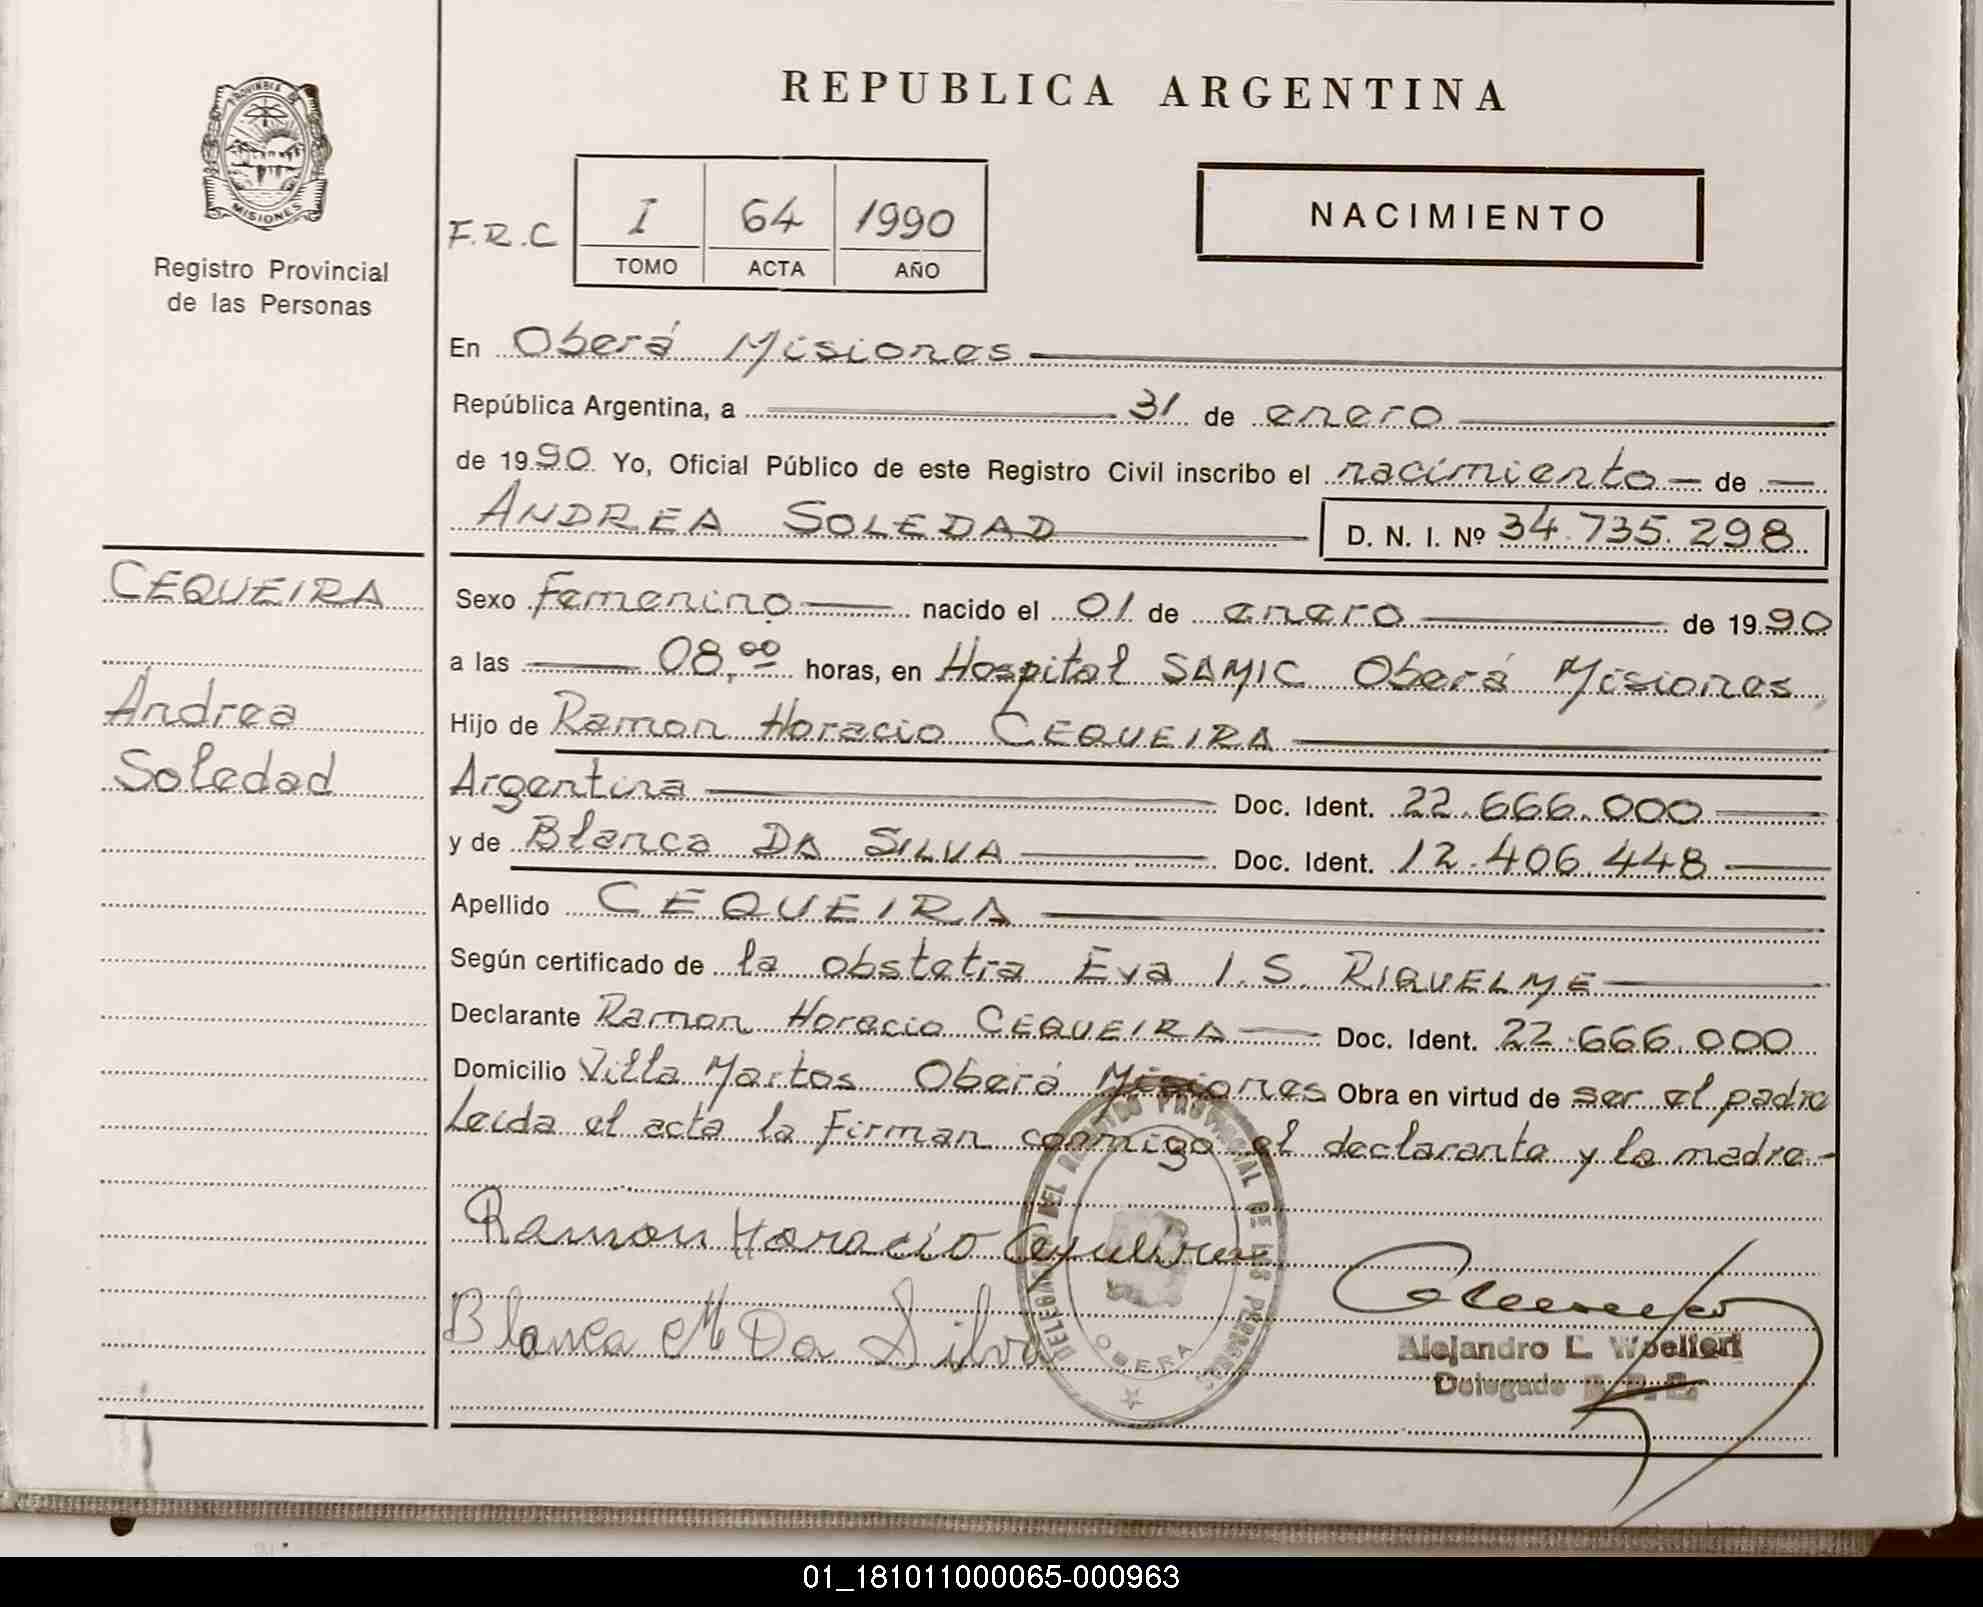 REPUBLICA ARGENTINA
PROVINCIA DE
MISIONES
Registro Provincial
de las Personas
F.R.C
I 64 1990
TOMO ACTA AÑO
NACIMIENTO
En Oberá Misiones
República Argentina, a 31 de enero
de 1990 Yo, Oficial Público de este Registro Civil inscribo el nacimiento de
ANDREA SOLEDAD D. N. I. Nº 34.735.298
CEQUEIRA
Andrea
Soledad
Sexo Femenino nacido el 01 de enero de 1990
a las 08,00 horas, en Hospital SAMIC Oberá Misiones
Hijo de Ramon Horacio CEQUEIRA
Argentina Doc. Ident. 22.666.000
y de Blanca DA SILVA Doc. Ident. 12.406.448
Apellido CEQUEIRA
Según certificado de la obstetra Eva I.S. RIQUELME
Declarante Ramon Horacio CEQUEIRA Doc. Ident. 22.666.000
Domicilio Villa Martos Oberá Misiones Obra en virtud de ser el padre
Leida el acta la Firman conmigo el declarante y la madre.-
Ramon Horacio Cequeira
Blanca M Da Silva
DELEGACION DEL REGISTRO PROVINCIAL DE LAS PERSONAS
OBERA
Alejandro L. Woelfert
Delegado
01_181011000065-000963